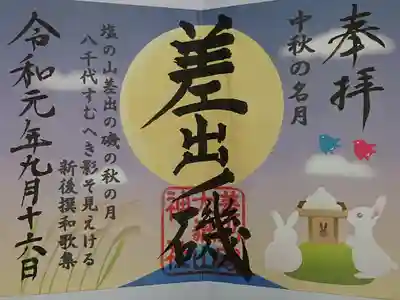 奉拝
中秋の名月
差出ノ磯
塩の山差出の磯の秋の月
八千代すむへき影そ見えける
新後撰和歌集
令和元年九月十六日